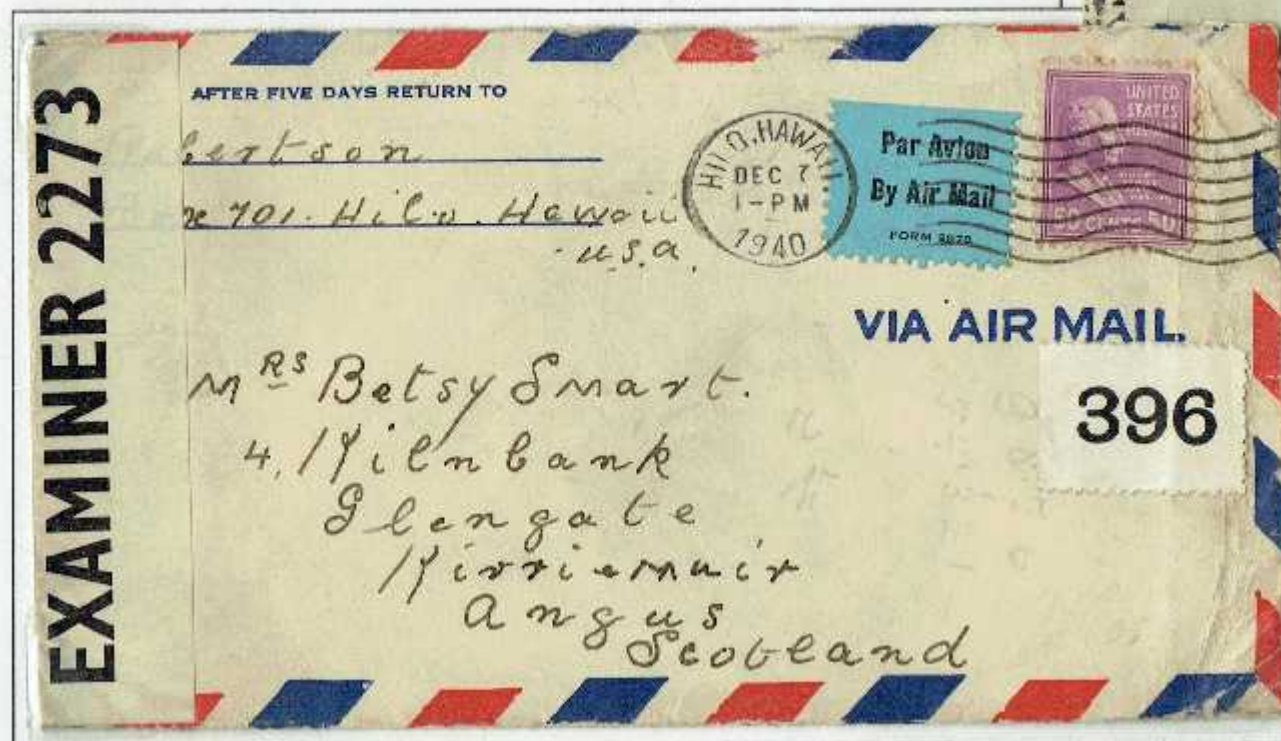 EXAMINER 2273
AFTER FIVE DAYS RETURN TO
bertson
x 701. Hilo. Hawaii
U.S.A.
HILO, HAWAII.
DEC 7
1-PM
1940
Par Avion
By Air Mail
FORM
UNITED
STATES
CENTS 50
VIA AIR MAIL.
396
Mrs Betsy Smart.
4, Kilnbank
Glengate
Kirriemuir
Angus
Scotland